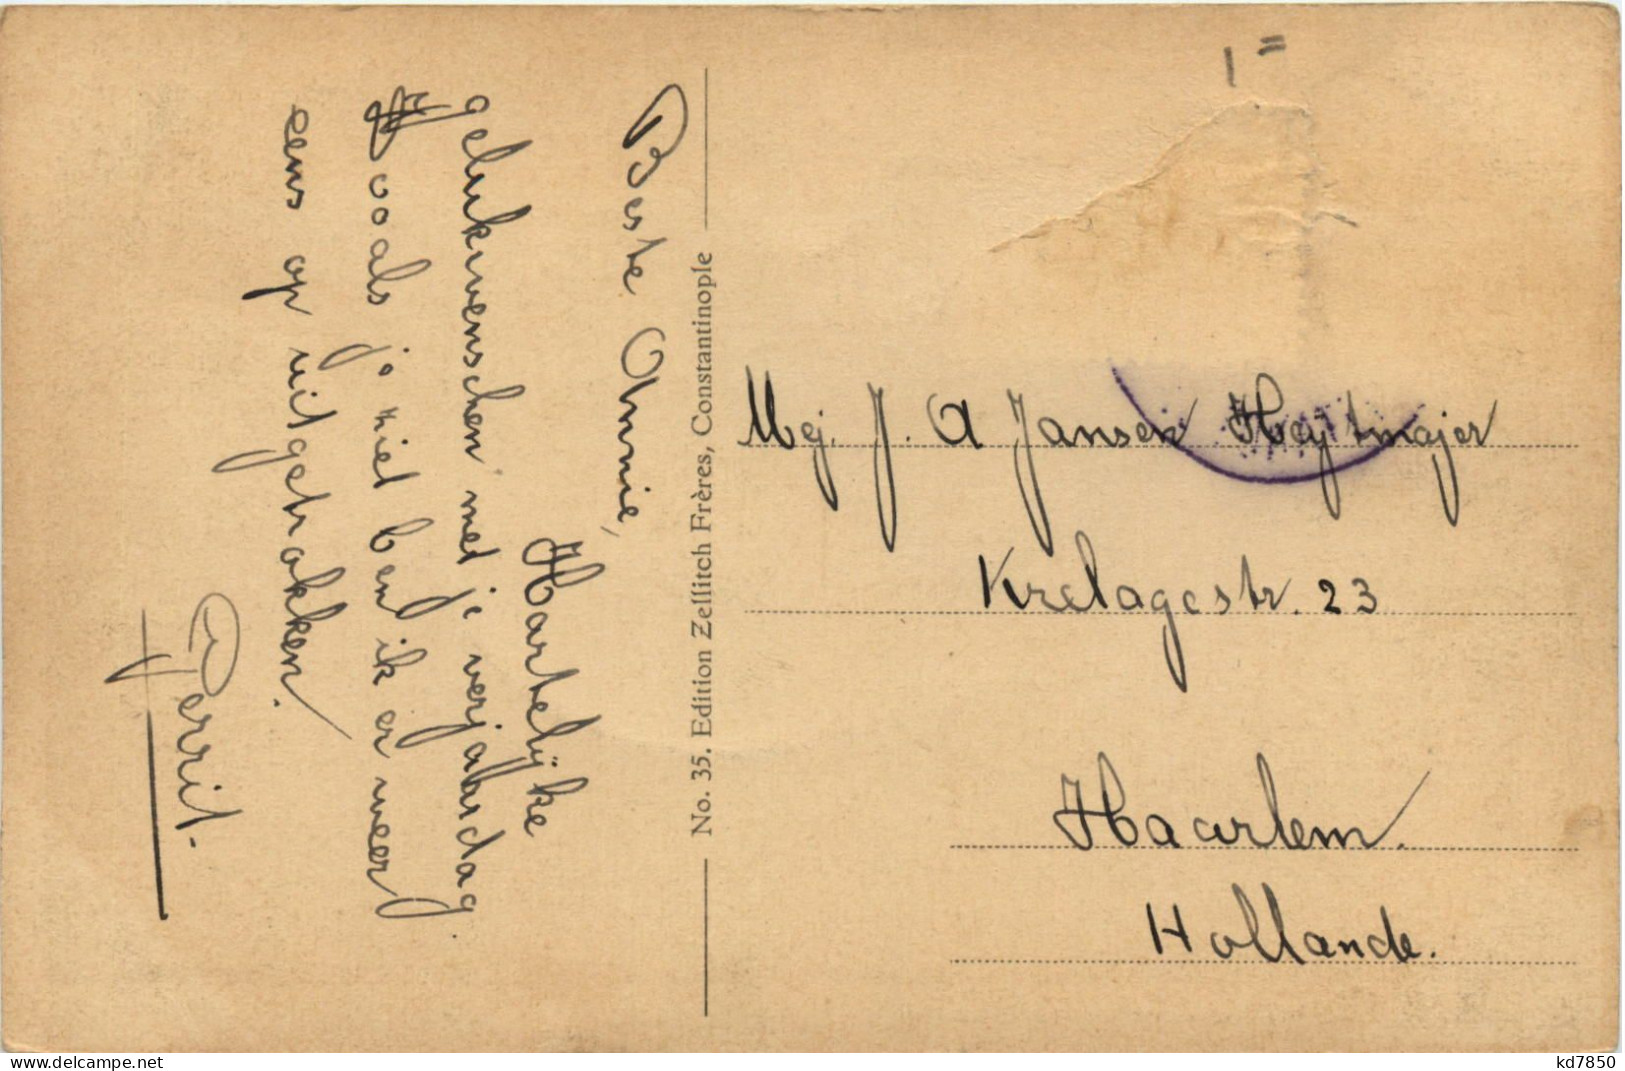 Beste Annie,
Hartelijke
gelukwenschen met je verjaardag.
Zooals je ziet ben ik er weer
eens op uitgetrokken.
Gerrit.
No. 35. Edition Zellitch Frères, Constantinople
1 =
Mej. J. A Jansen Heytmajer
Krelagestr. 23
Haarlem.
Hollande.
www.delcampe.net
kd7850